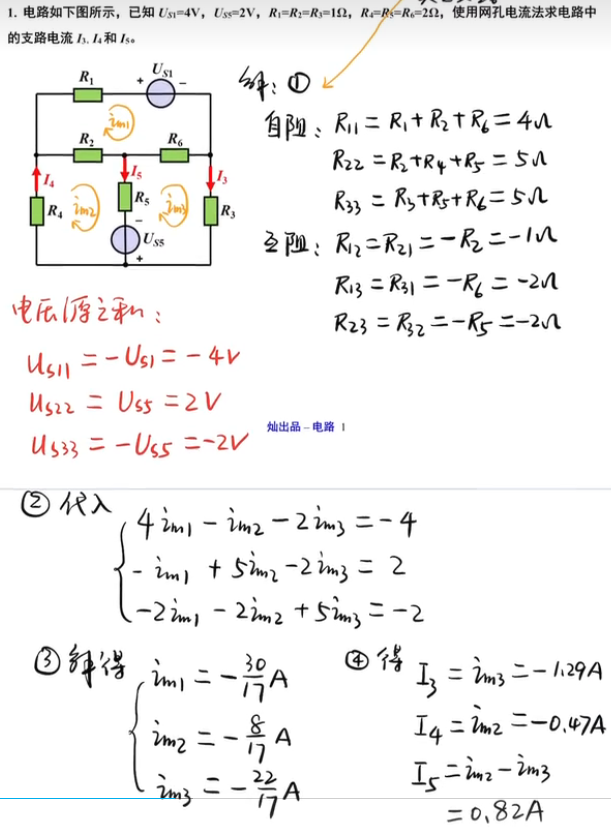 1. 电路如下图所示，已知 U_S1=4V，U_S5=2V，R₁=R₂=R₃=1Ω，R₄=R₅=R₆=2Ω，使用网孔电流法求电路中
的支路电流 I₃, I₄ 和 I₅。
R₁ + U_S1 −
im1
R₂ R₆
I₄ I₅ I₃
R₄ im2 R₅ im3 R₃
−
U_S5
+
解：①
自阻：R11 = R1 + R2 + R6 = 4Ω
R22 = R2+R4+R5 = 5Ω
R33 = R3+R5+R6 = 5Ω
互阻：R12 = R21 = −R2 = −1Ω
R13 = R31 = −R6 = −2Ω
R23 = R32 = −R5 = −2Ω
电压源之和：
US11 = −US1 = −4V
US22 = US5 = 2V
US33 = −US5 = −2V
灿出品 – 电路 1
② 代入
4im1 − im2 − 2im3 = −4
− im1 + 5im2 − 2im3 = 2
−2im1 − 2im2 + 5im3 = −2
③ 解得
im1 = −30/17 A
im2 = −8/17 A
im3 = −22/17 A
④ 得
I3 = im3 = −1.29A
I4 = im2 = −0.47A
I5 = im2 − im3
= 0.82A